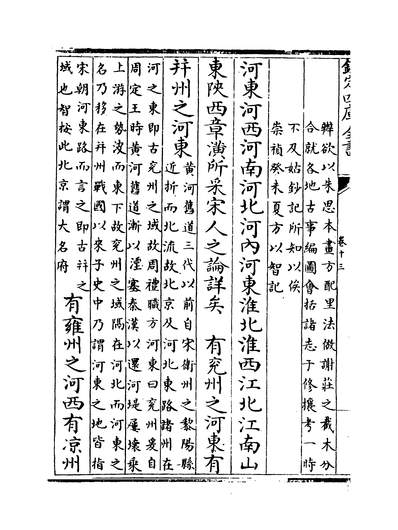 欽定四庫全書
卷十三
韓欲以朱思本畫方配里法倣謝莊之裁木分
合就各地古事編圖會括諸志予修攘考一時
不及姑鈔記所知以俟
崇禎癸未夏方以智記
河東河西河南河北河內河東淮北淮西江北江南山
東陝西章潢所采宋人之論詳矣　有兗州之河東有
幷州之河東
黃河舊道三代以前自宋衛州之黎陽縣
近折而北流故北京及河北東路諸州在
河之東即古兗州之域故周禮職方河東曰兗州爰自
周定王時黃河舊道漸以湮塞秦漢以還河堤屢壞乘
上游之勢而東下故兗州之域隔在河北而河東之
名乃移在幷州戰國以來子史中乃謂河東之地皆指
宋朝河東路而言之即古幷之
域也智按此北京謂大名府
有雍州之河西有凉州